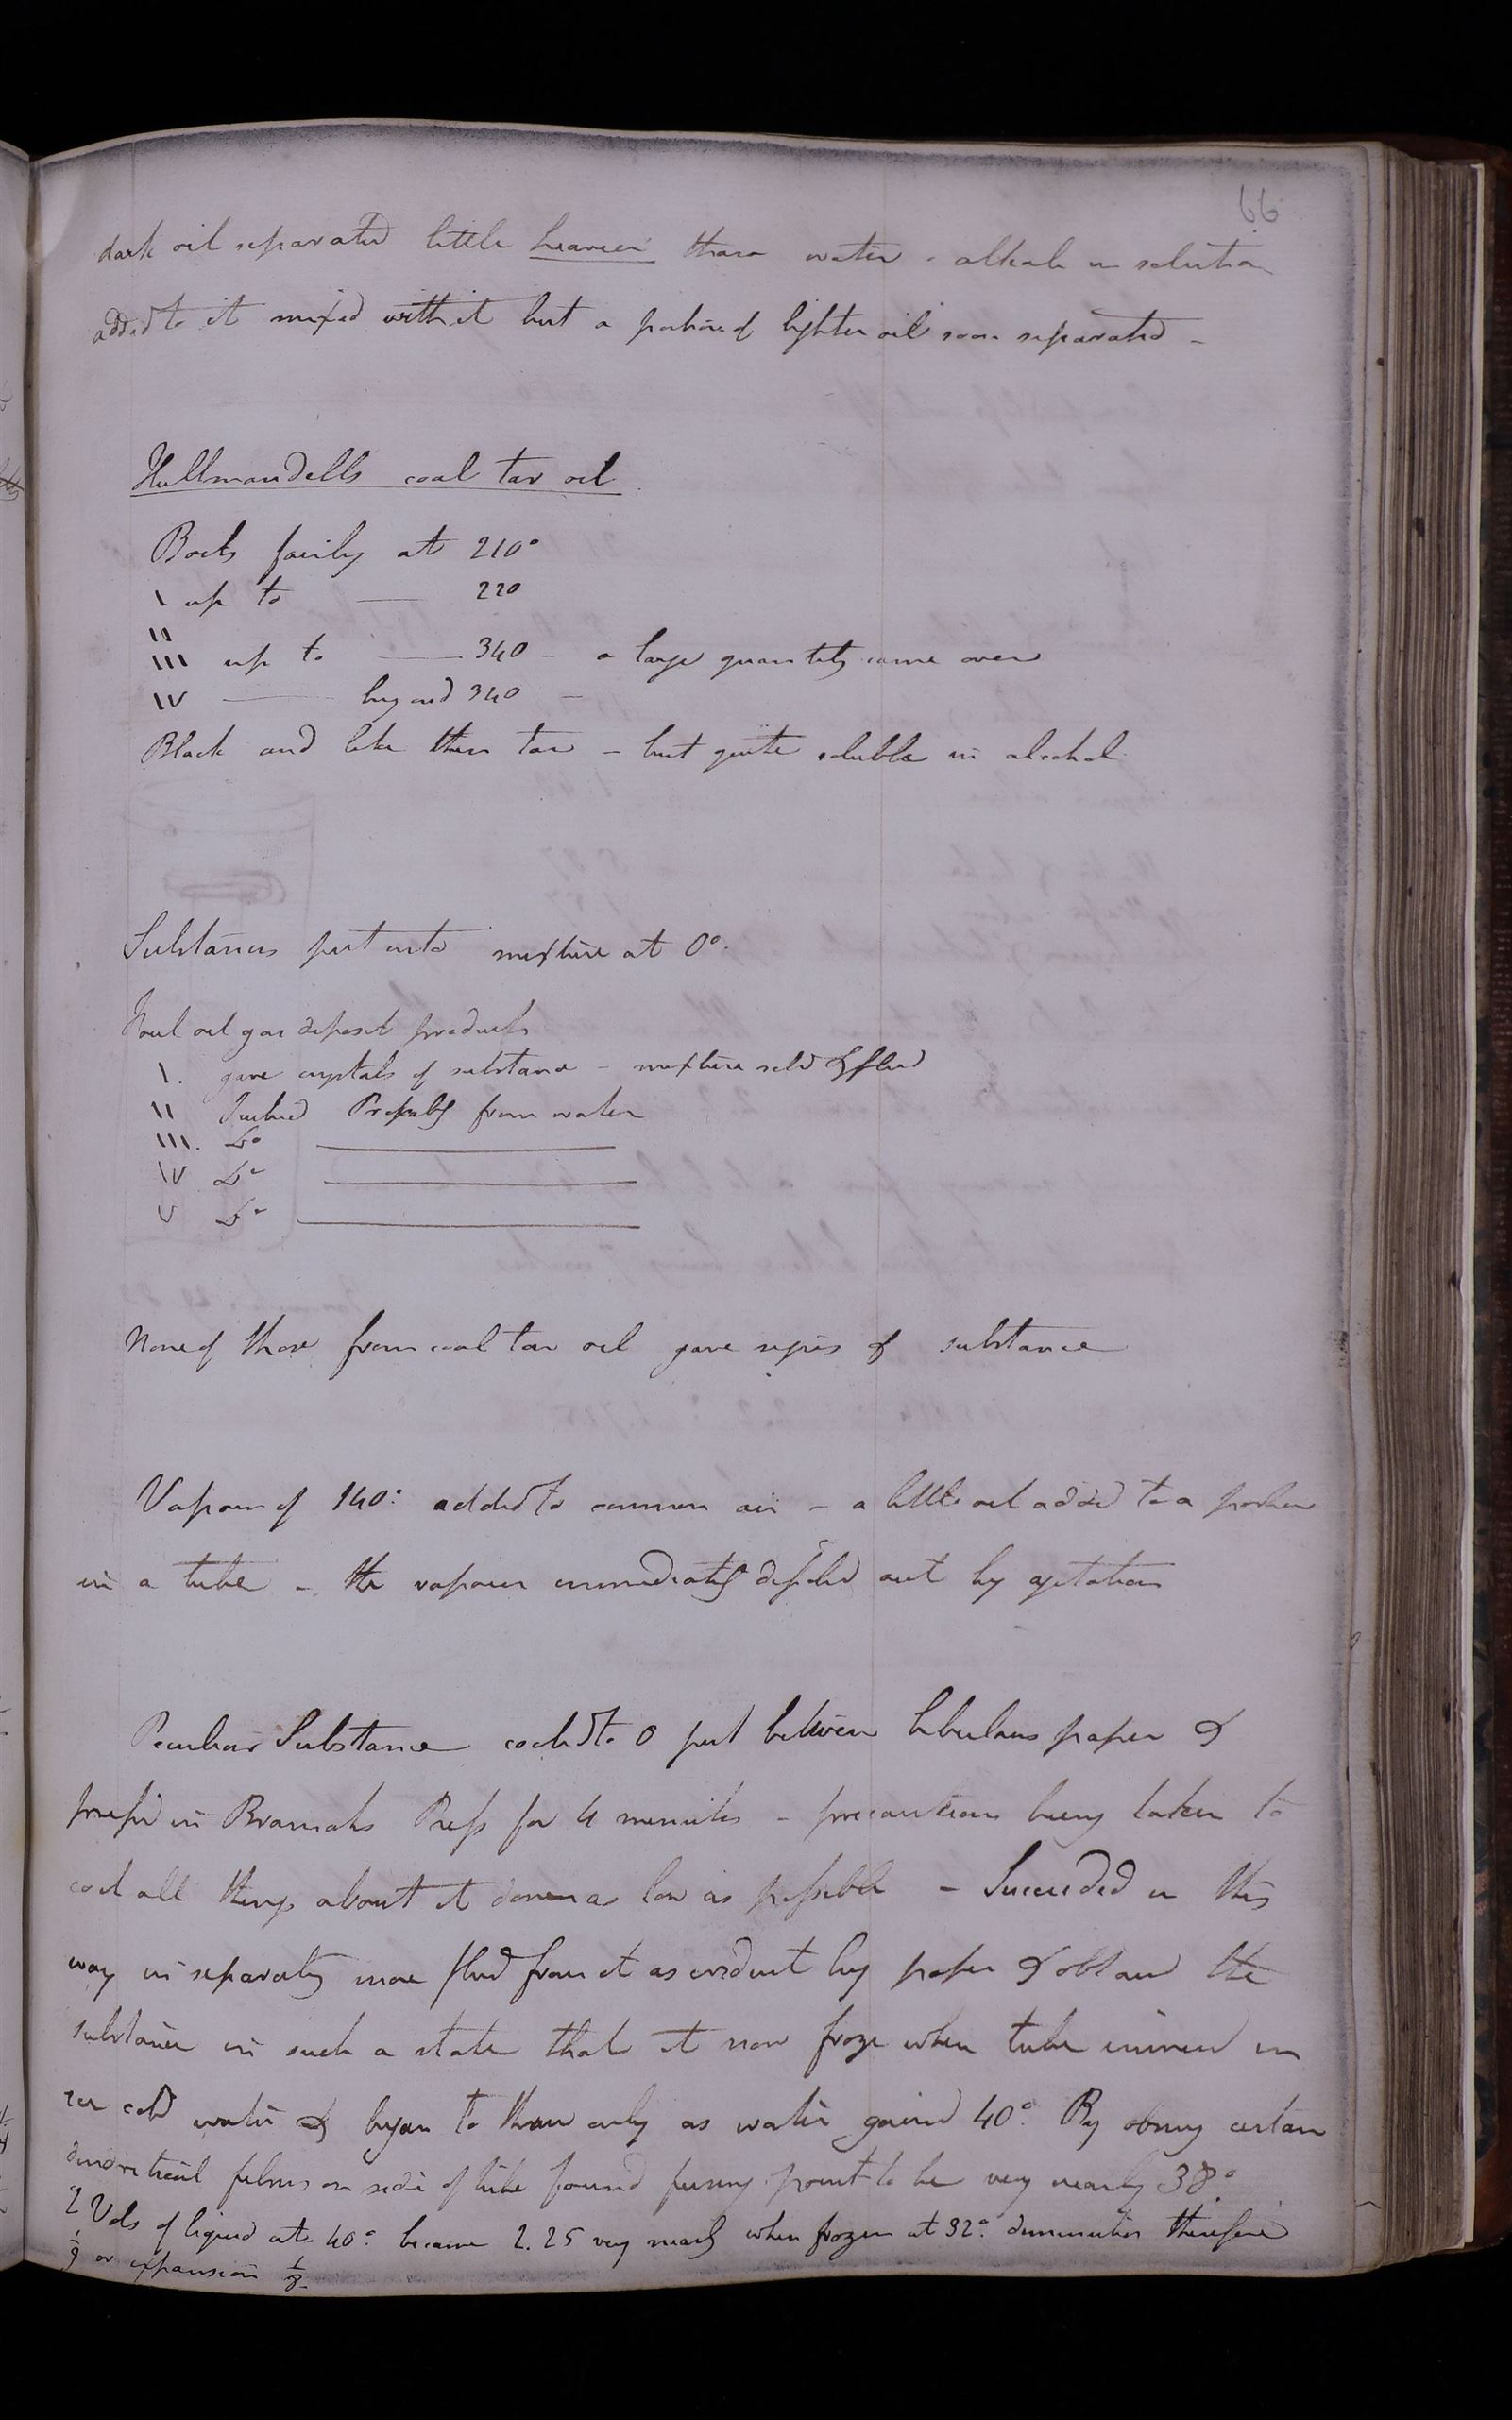 66
dark oil separated little heavier than water - alkali in solution
added to it mixed with it but a portion of lighter oil soon separated -
Hullmandells coal tar oil
Boils fairly at 210°
\ up to — 220
\\
\\\ up to — 340 - a large quantity came over
\V — beyond 340 -
Black and like thin tar - but quite soluble in alcohol
Substances put into mixture at 0°.
oil gas deposit products
\. gave crystals of substance - mixture solid & fluid
\\ Probably from water
\\\. Do —
\V Do —
V Do —
None of those from coal tar oil gave signs of substance
Vapour of 140° added to common air - a little oil added to a portion
in a tube - the vapour immediately out by agitation
Peculiar Substance cooled to 0 put between bibulous paper &
pressed in Bramahs Press for 4 minutes - precautions being taken to
cool all things about it down as low as possible - Succeeded in this
way in separating more fluid from it as evident by paper & obtained the
substance in such a state that it now froze when tube immersed in
ice cold water & began to thaw only as water gained 40°. By obsing certain
dendritical films on side of tube found fusing point to be very nearly 38°.
2 Vols of liquid at 40° became 2.25 very nearly when frozen at 32°. diminution therefore
1/9 or expansion 1/8.